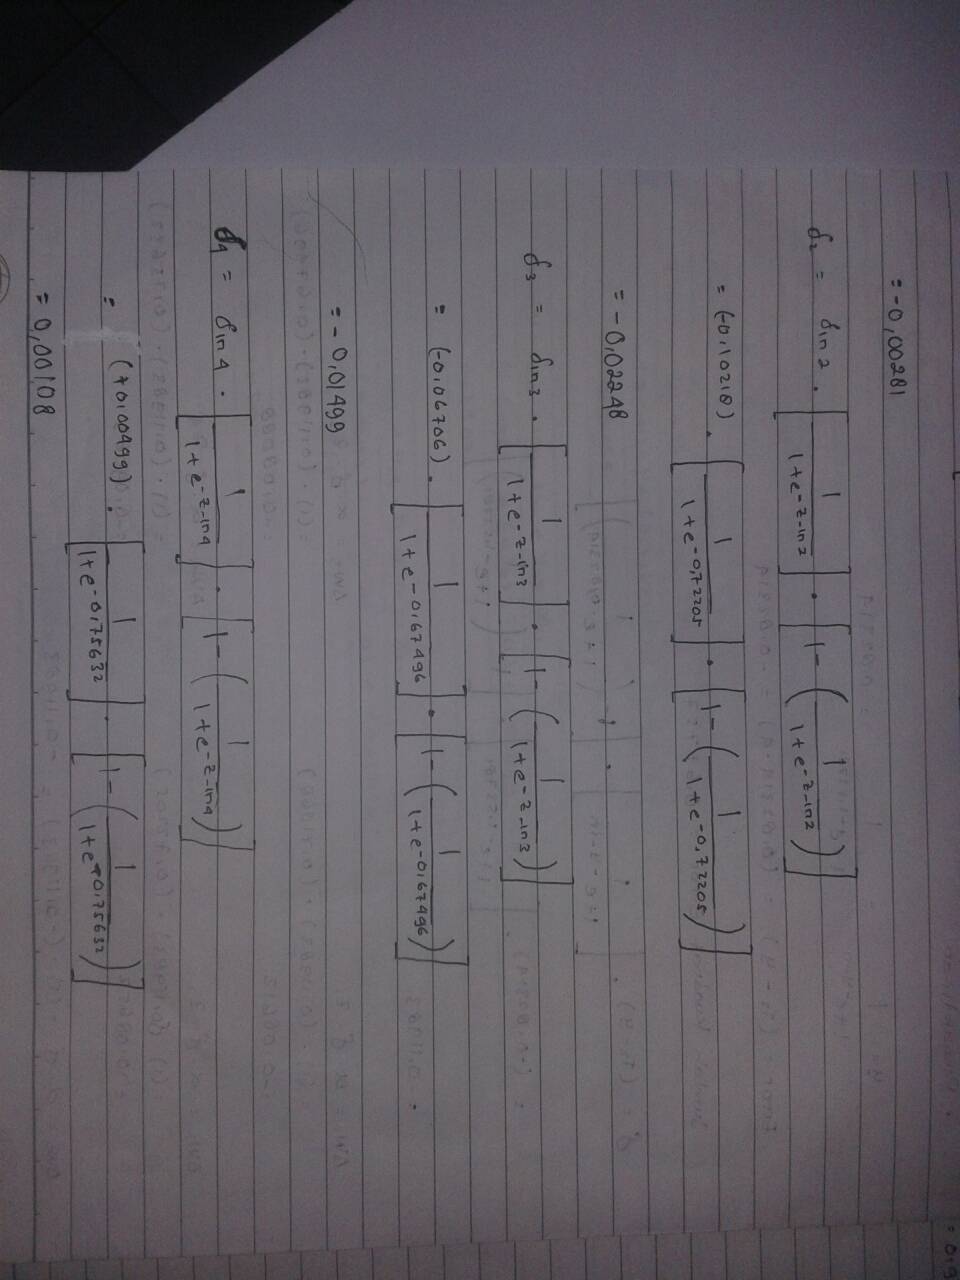 = -0,00281
δ2 = δin2 · [1 / 1+e-z-in2] · [1 - (1 / 1+e-z-in2)]
= (-0,10218) · [1 / 1+e-0,72205] · [1 - (1 / 1+e-0,72205)]
= -0,02248
δ3 = δin3 · [1 / 1+e-z-in3] · [1 - (1 / 1+e-z-in3)]
= (-0,06706) · [1 / 1+e-0,67496] · [1 - (1 / 1+e-0,67496)]
= -0,01499
δ4 = δin4 · [1 / 1+e-z-in4] · [1 - (1 / 1+e-z-in4)]
= (+0,00499) · [1 / 1+e-0,75632] · [1 - (1 / 1+e-0,75632)]
= 0,00108